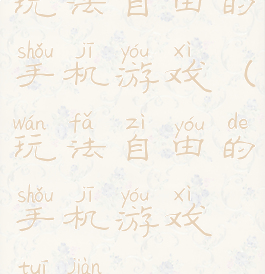 玩法自由的
shǒu jī yóu xì
手机游戏（
wán fǎ zì yóu de
玩法自由的
shǒu jī yóu xì
手机游戏
tuī jiàn